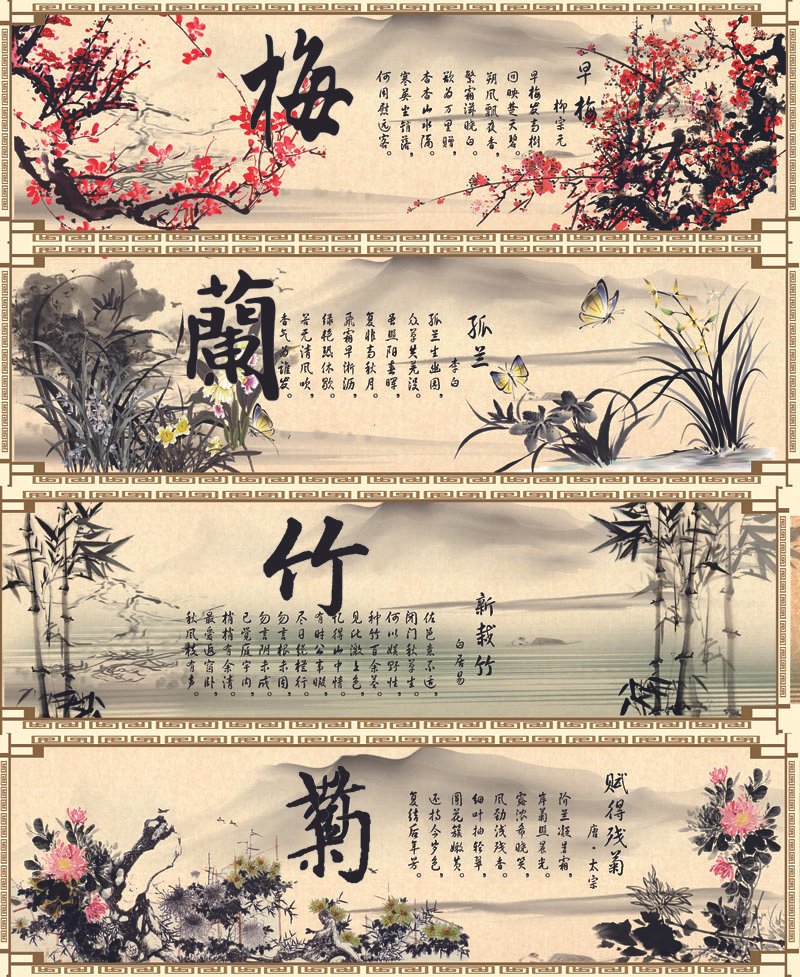 梅
早梅
柳宗元
早梅发高樹，
回映楚天碧。
朔风飘夜香，
繁霜滋晓白。
欲为万里赠，
杳杳山水隔。
寒英坐销落，
何用慰远客。
蘭
孤兰
李白
孤兰生幽园，
众草共芜没。
虽照阳春晖，
复非高秋月。
飞霜早淅沥，
绿艳恐休歇。
若无清风吹，
香气为谁发。
竹
新栽竹
白居易
佐邑意不适，
闭门秋草生。
何以娱野性，
种竹百余茎。
见此溪上色，
忆得山中情。
有时公事暇，
尽日绕栏行。
勿言根未固，
勿言阴未成。
已觉庭宇内，
梢梢有余清。
最爱近窗卧，
秋风枝有声。
菊
赋得残菊
唐·太宗
阶兰凝曙霜，
岸菊照晨光。
露浓希晓笑，
风劲浅残香。
细叶抽轻翠，
圆花簇嫩黄。
还持今岁色，
复结后年芳。